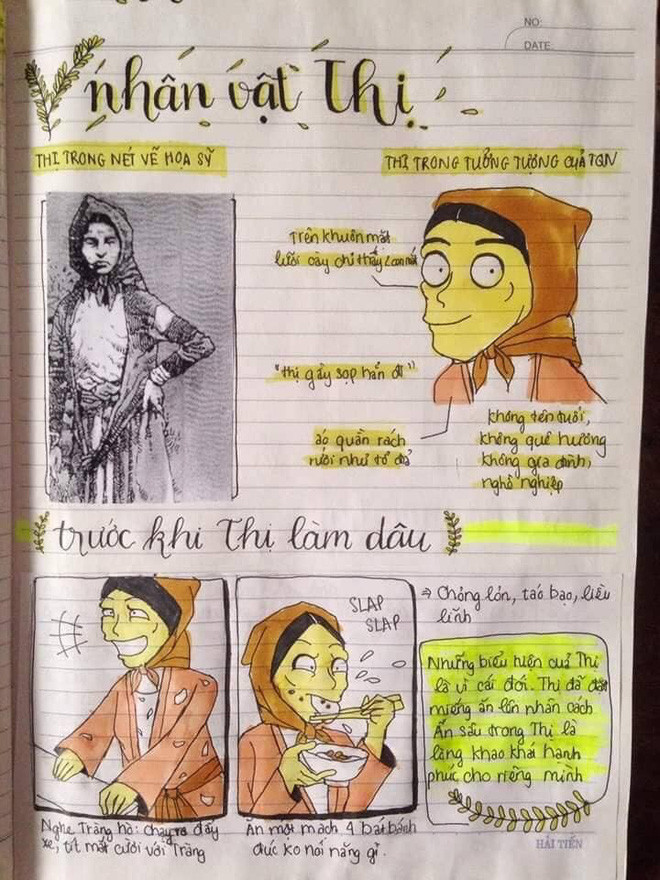 NO:
DATE
nhân vật Thị
THỊ TRONG NÉT VẼ HỌA SỸ
THỊ TRONG TƯỞNG TƯỢNG CUẢ TQN
Trên khuôn mặt
lưỡi cày chỉ thấy 2 con mắt
"thị gầy sọp hẳn đi"
áo quần rách
rưới như tổ đỉa
không tên tuổi,
không quê hương
không gia đình,
nghề nghiệp
trước khi Thị làm dâu
SLAP
SLAP
⇒ Chỏng lỏn, táo bạo, liều
lĩnh
Những biểu hiện cuả Thị
là vì cái đói. Thị đã đặt
miếng ăn lên nhân cách
Ẩn sâu trong Thị là
lòng khao khát hạnh
phúc cho riêng mình
Nghe Tràng hò: chạy ra đẩy
xe, tít mắt cười với Tràng
Ăn một mạch 4 bát bánh
đúc ko nói năng gì.
HẢI TIẾN